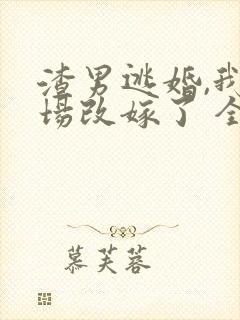 渣男逃婚,我
场改嫁了 全
慕芙蓉